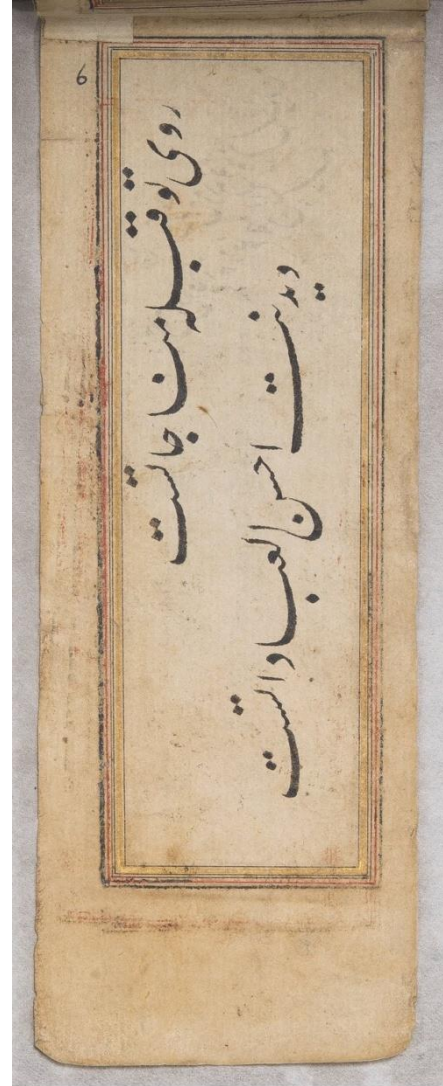 6
روی تو قبله مناجاتست
دیدنت احسن العباداتست